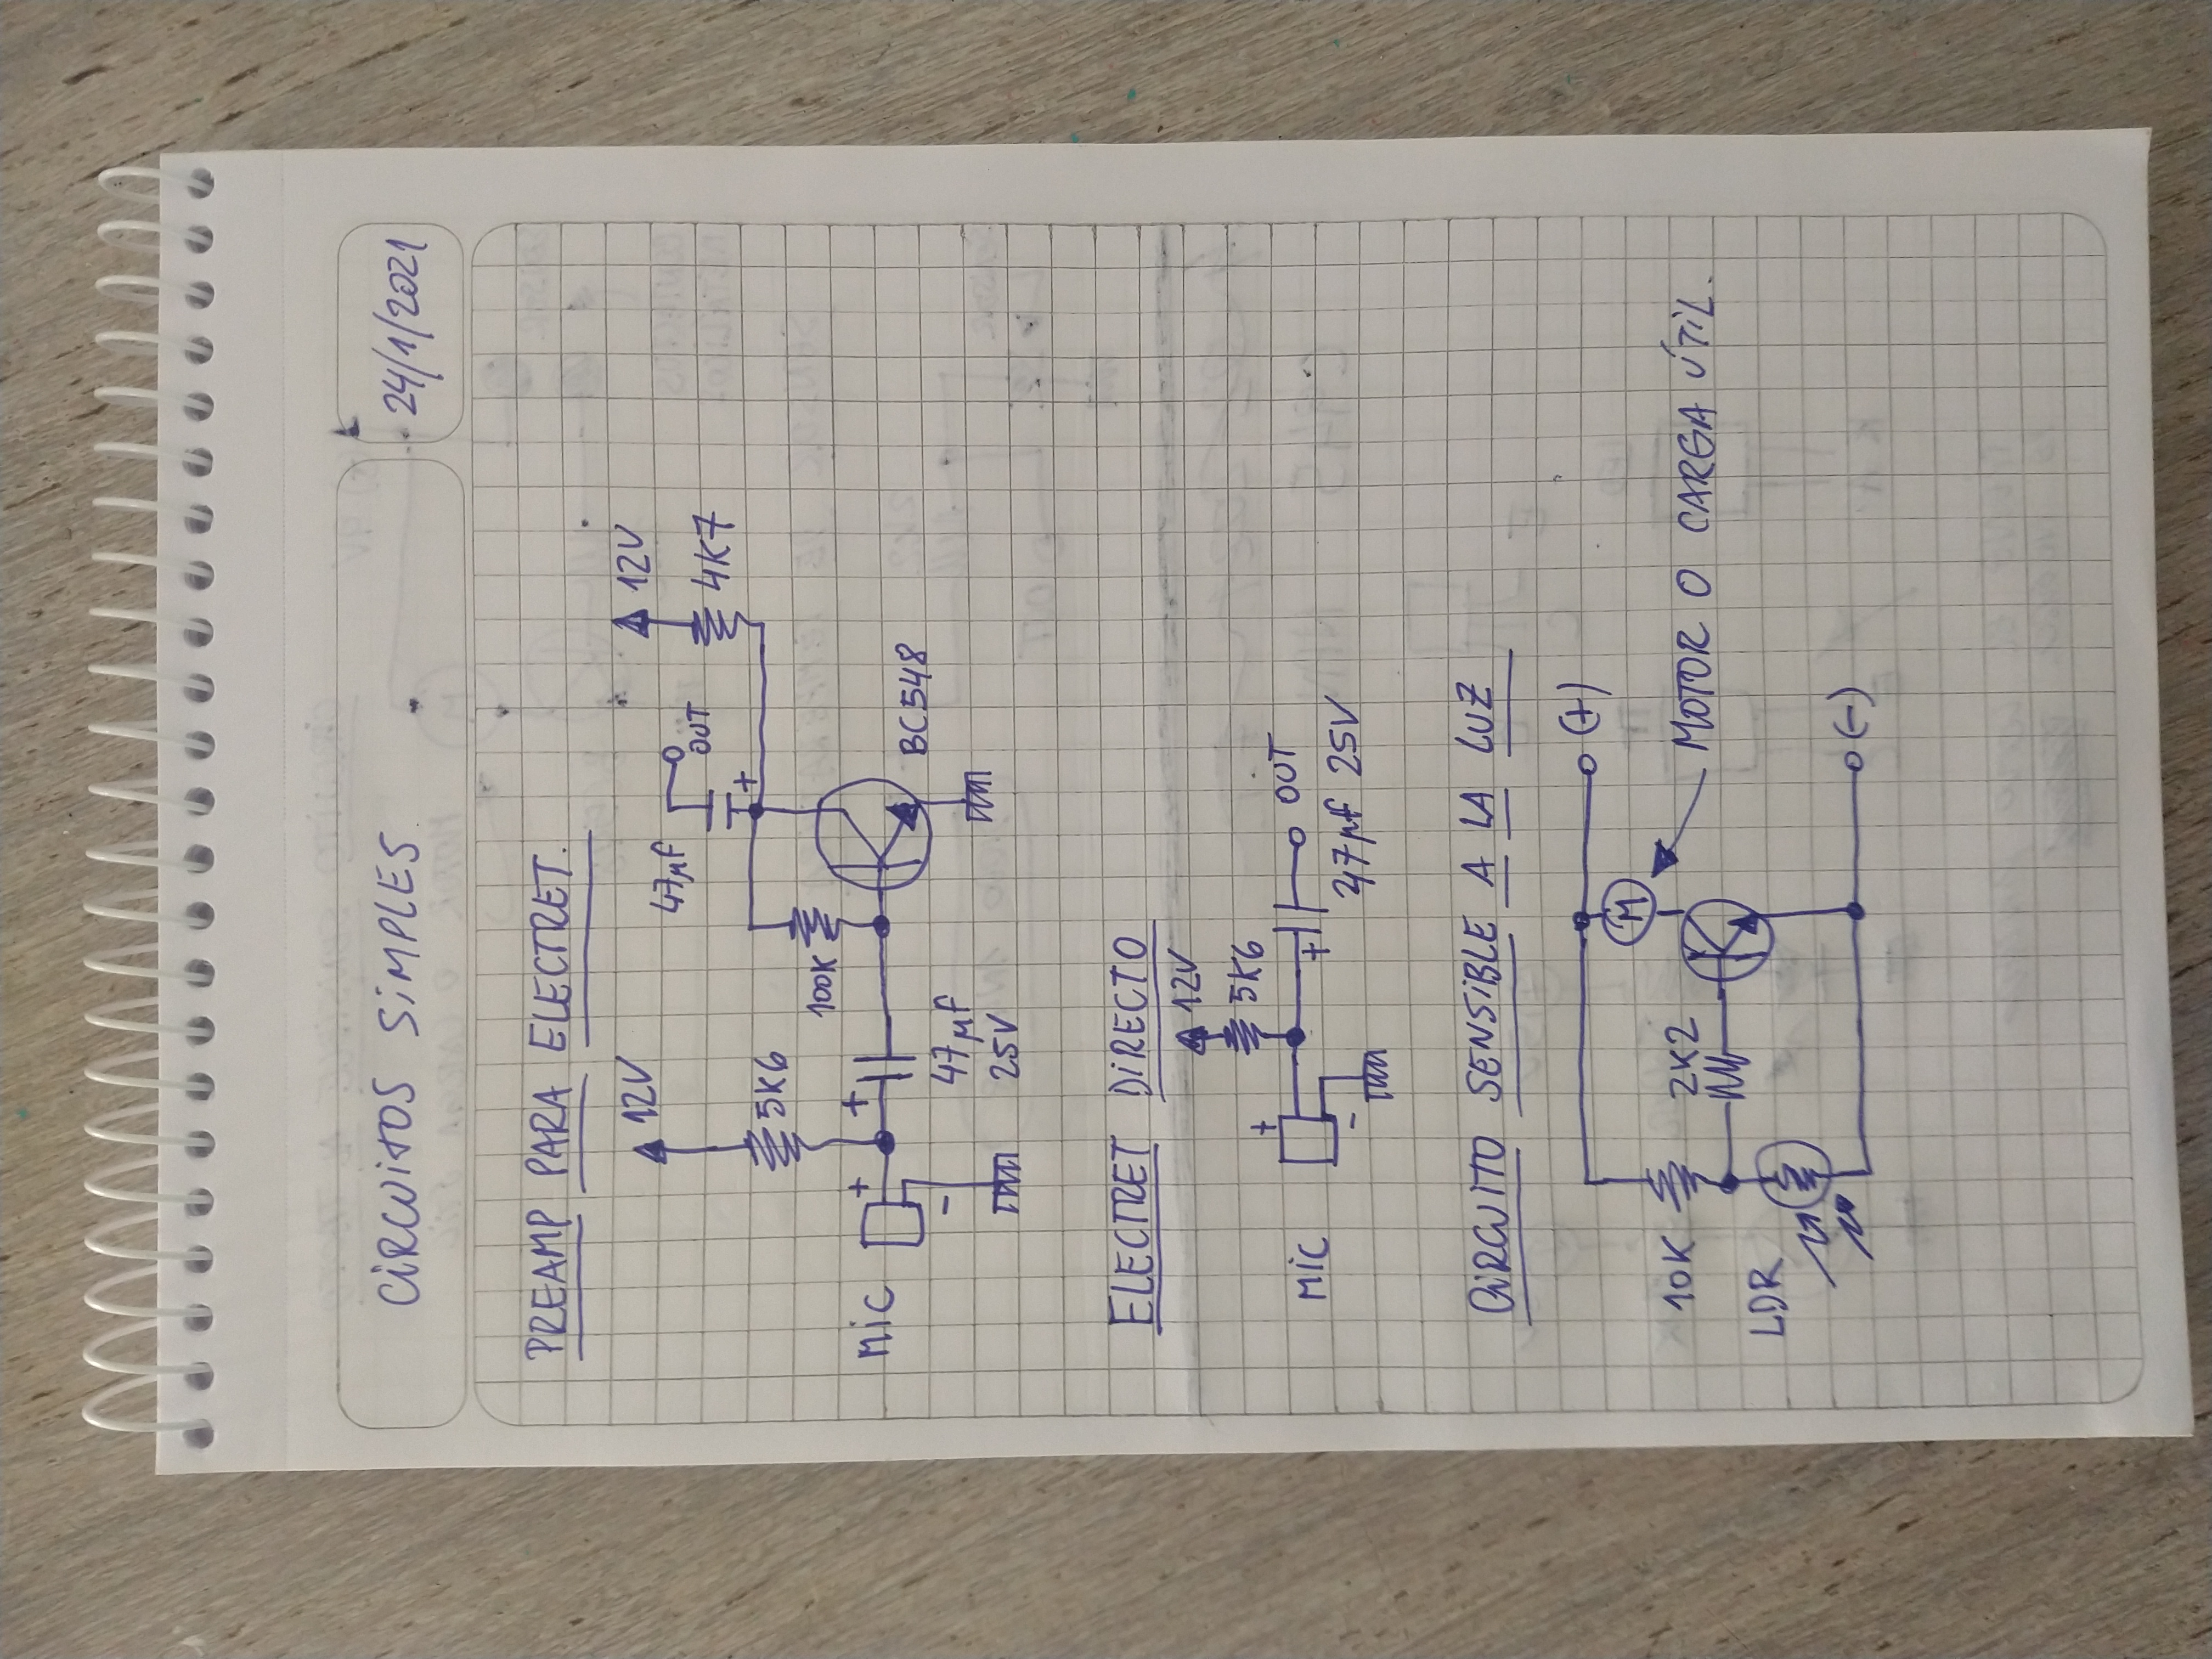 CIRCUITOS SIMPLES.
24/1/2021
PREAMP PARA ELECTRET.
12V
47µf
OUT
12V
4K7
+
5K6
100K
MIC
+
+
-
47µf
25V
BC548
ELECTRET DIRECTO
12V
5K6
+
MIC
+
OUT
-
47µf 25V
CIRCUITO SENSIBLE A LA LUZ
(+)
M
10K
2K2
MOTOR O CARGA ÚTIL.
LDR
(-)